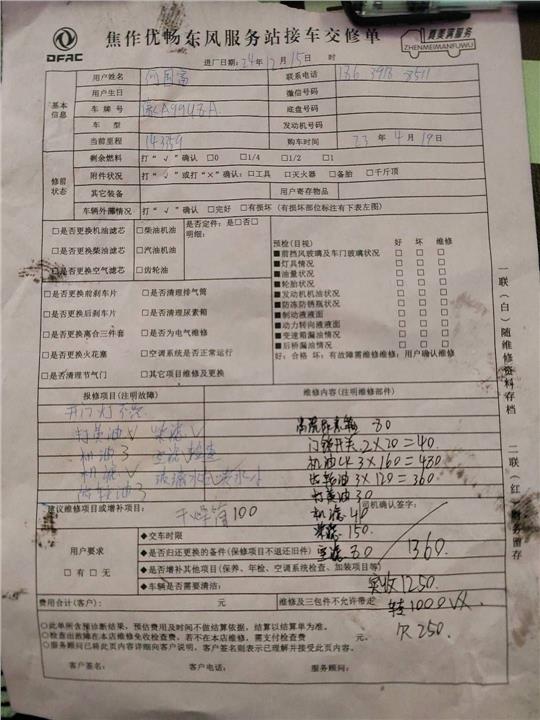 DFAC
焦作优畅东风服务站接车交修单
臻美满服务
ZHENMEIMANFUWU
进厂日期：24年12月15日 时
基本信息
用户姓名 何国富 联系电话
用户生日 微信号码
车牌号 底盘号码
车型 发动机号码
当前里程 143759 购车时间 23年4月19日
修前状态
剩余燃料 打“√”确认 □0 □1/4 □1/2 □1
附件状况 打“√”或打“×”确认：□工具 □灭火器 □备胎 □千斤顶
其它装备 用户寄存物品
车辆外漏情况 打“√”确认 □完好 □有损坏（有损坏部位标注有下表左图）
□是否更换机油滤芯 □柴机油
□是否更换柴油滤芯 □汽油机油
□是否更换空气滤芯 □齿轮油
是否定件：是□否□
明细：
□是否更换前刹车片 □是否清理排气筒
□是否更换后刹车片 □是否清理尿素箱
□是否更换离合三件套 □是否为电气维修
□是否更换火花塞 □空调系统是否正常运行
□是否清理节气门 □其它项目维修及更换
预检（目视） 好 坏 维修
■前挡风玻璃及车门玻璃状况 □ □ □
■灯具情况 □ □ □
■油量状况 □ □ □
■轮胎状况 □ □ □
■发动机机油情况 □ □ □
■防冻防锈瓶状况 □ □ □
■制动液液面 □ □ □
■动力转向液液面 □ □ □
■变速箱漏油情况 □ □ □
■后桥漏油情况 □ □ □
好：合格 坏：有故障需维修维修：用户确认维修
一联（白）随维修资料存档
二联（红）财务留存
报修项目（注明故障） 维修内容（注明维修部件）
开门灯不亮
打黄油√ 柴滤√
机油3
机滤√
齿轮油3
门锁开关 2×20=40
机油CK 3×160=480
齿轮油 3×120=360
打黄油 30
机滤 40
柴滤 150
空滤 30
1360
建议维修项目或增补项目： 干燥管100
司机确认签字：
用户要求
□有 □无
◆交车时限
◆是否归还更换的备件（保修项目不退还旧件）
◆是否增补其他项目（保养、年检、空调系统检查、加装项目等）
◆车辆是否需要清洁：
实收1250.
费用合计（客户）： 元 维修及三包件不允许带走
转1000
欠250.
○此单所含预诊断结果，预估费用及时间不做结算依据，结算以结算单为准。
○检查出故障在本店维修免收检查费，若不在本店维修，需支付检查费 元。
○服务顾问已将此页内容详细向客户说明，客户签名则表示已理解并接受此页内容。
客户签名： 客户电话： 服务顾问：